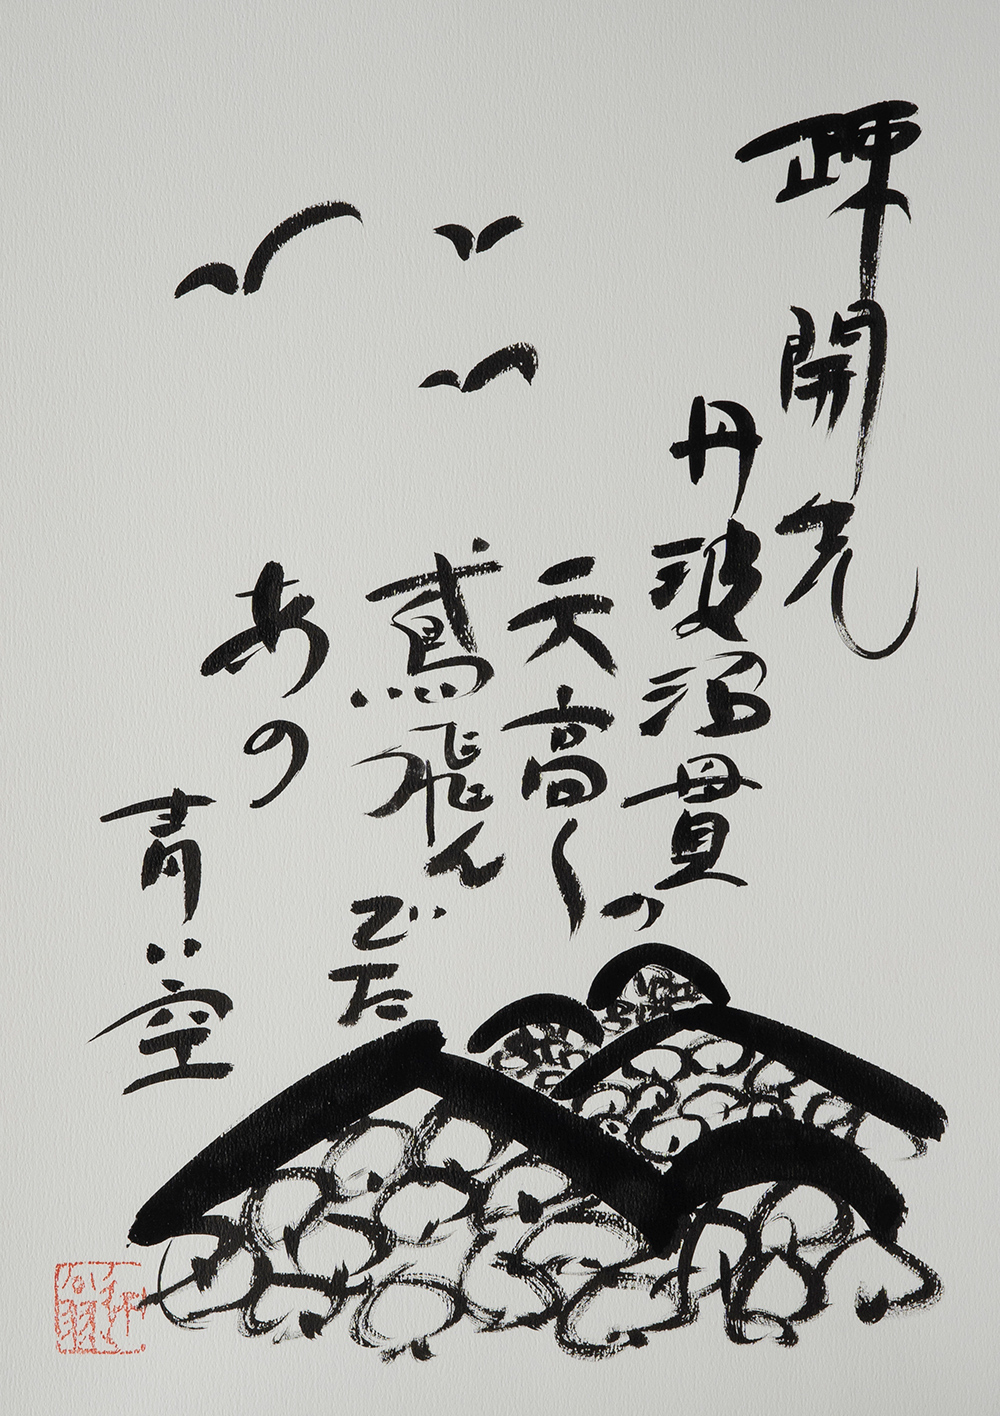 疎開先
丹波沼貫の
天高く
鳶飛んでた
あの
青い空